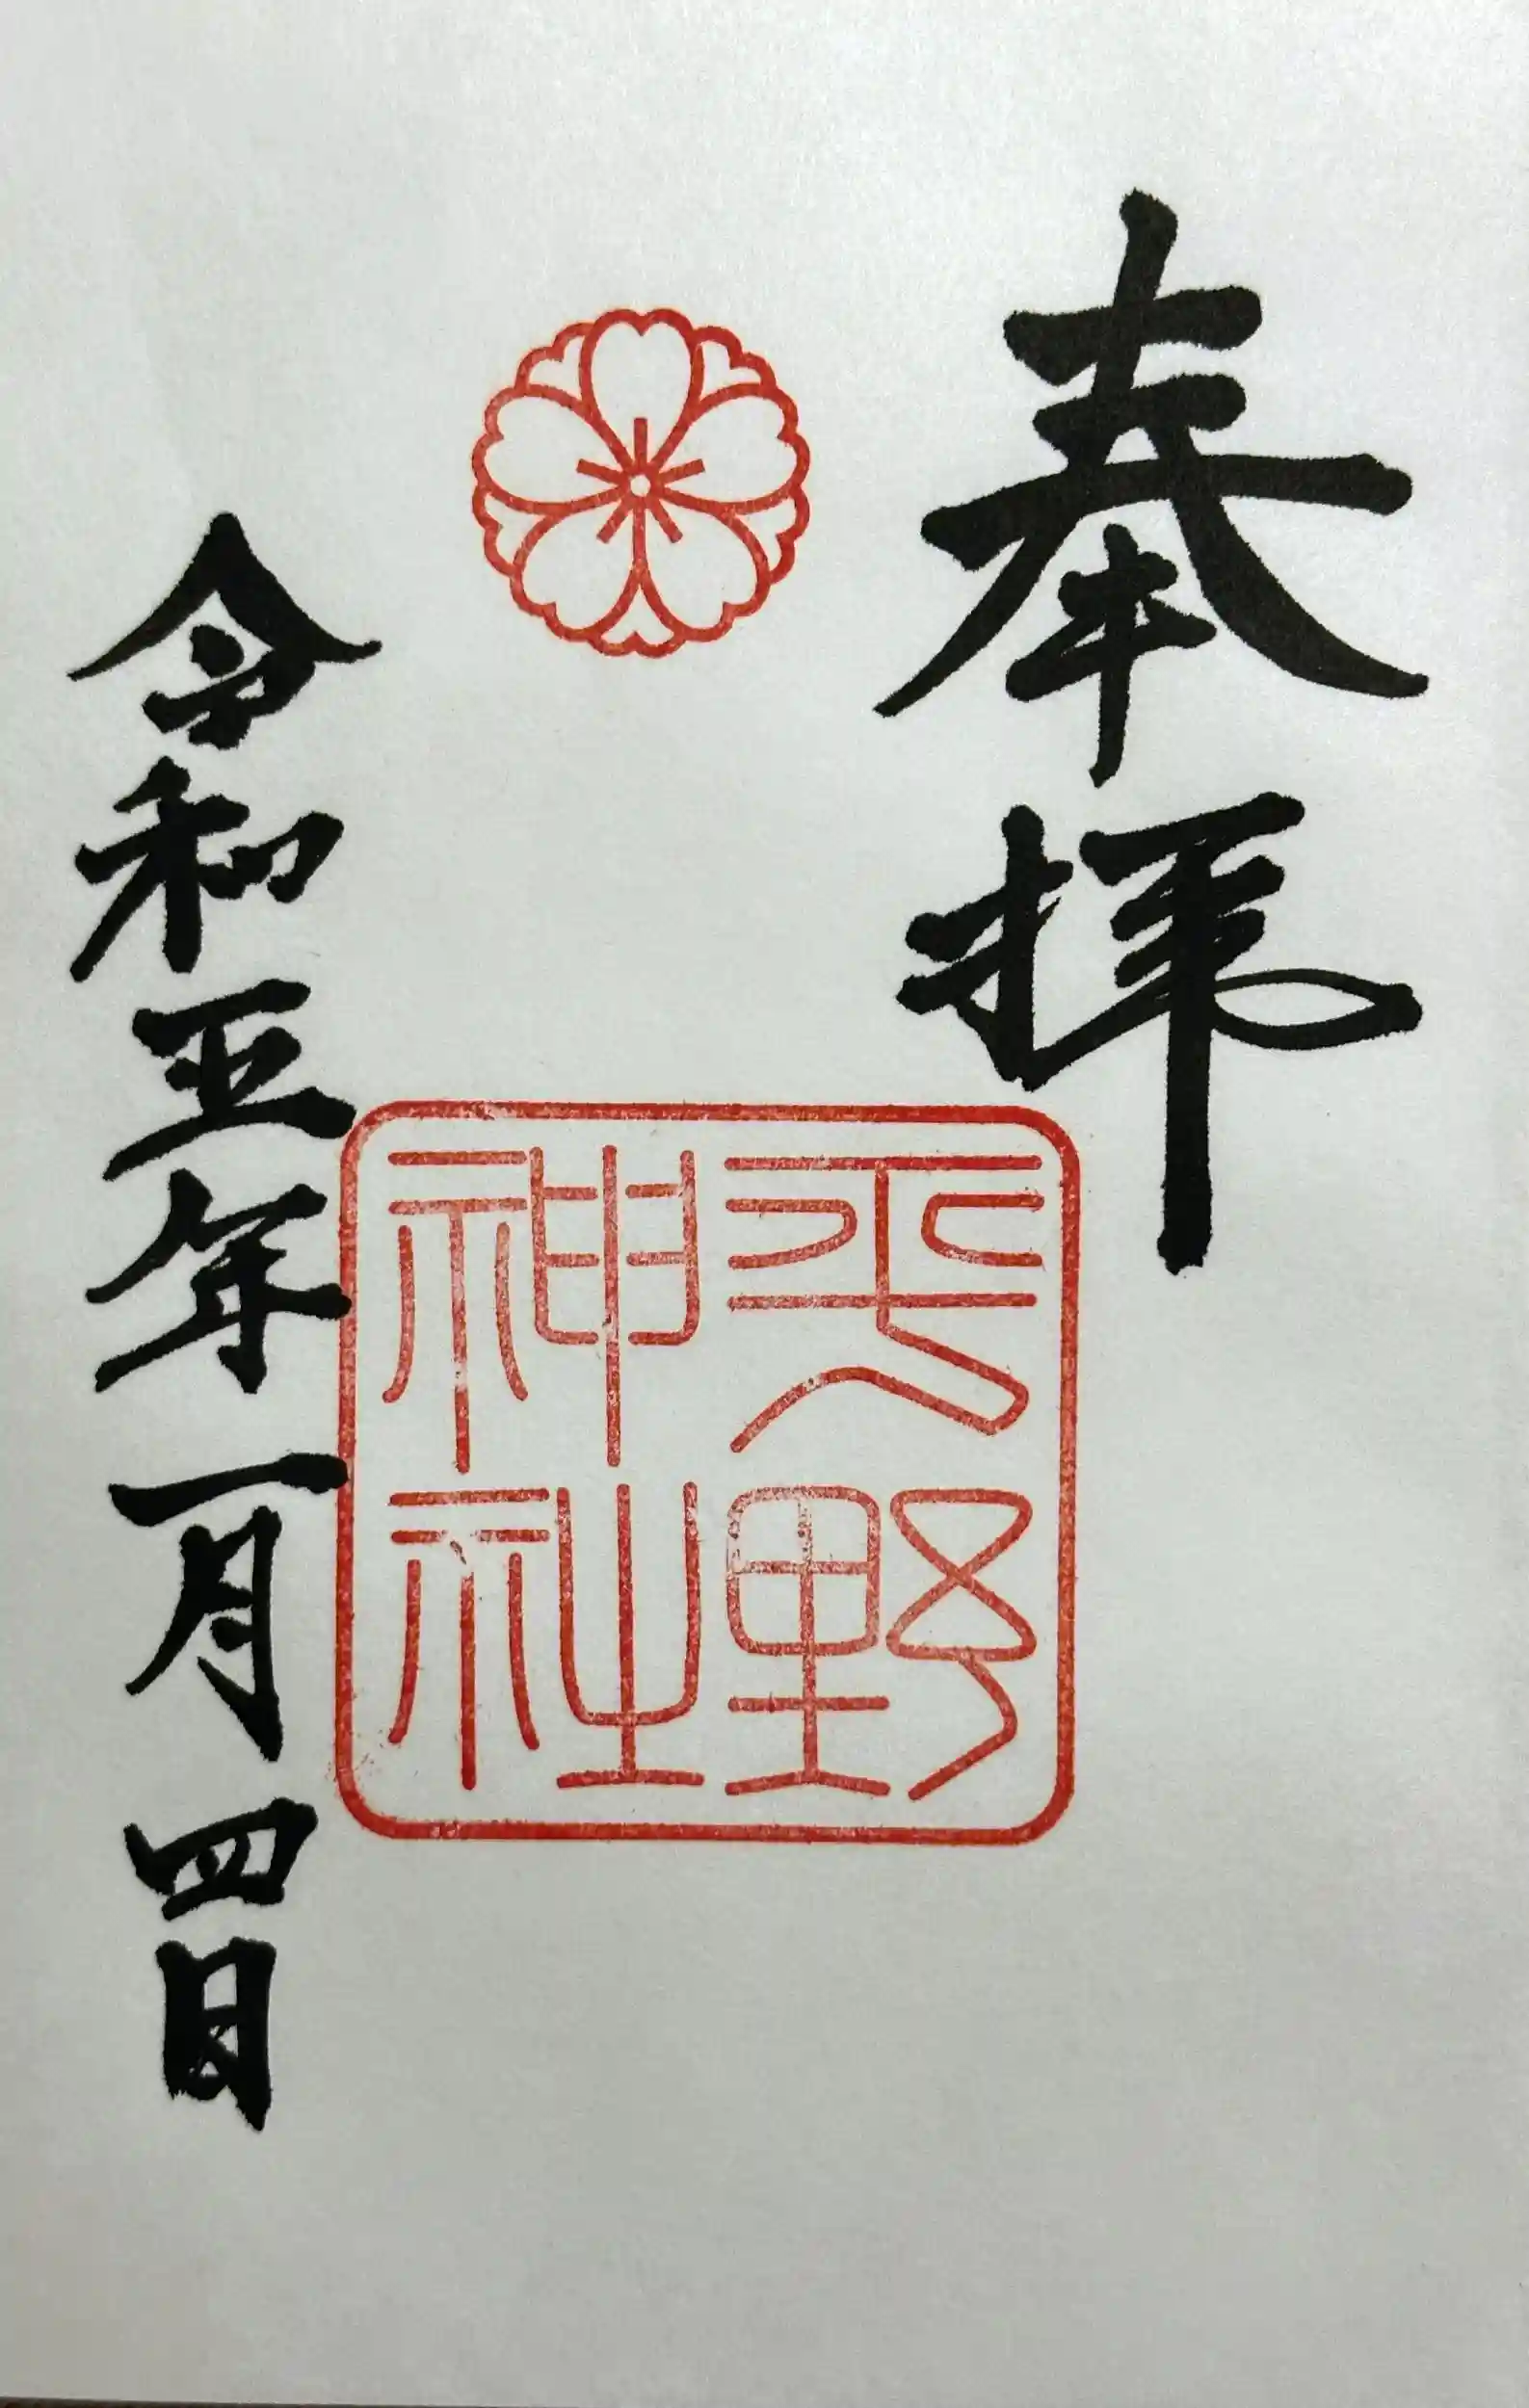 奉拝
平野
神社
令和五年一月四日